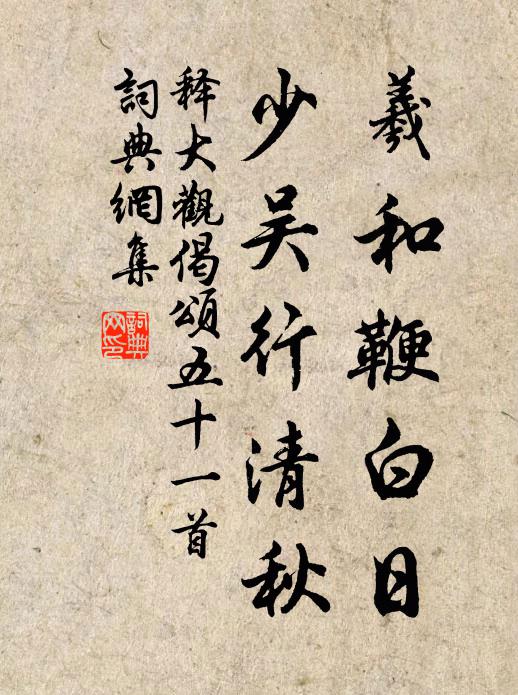 羲和鞭白日
少吴行清秋
释大觀偈頌五十一首
詞典網集
詞典网印